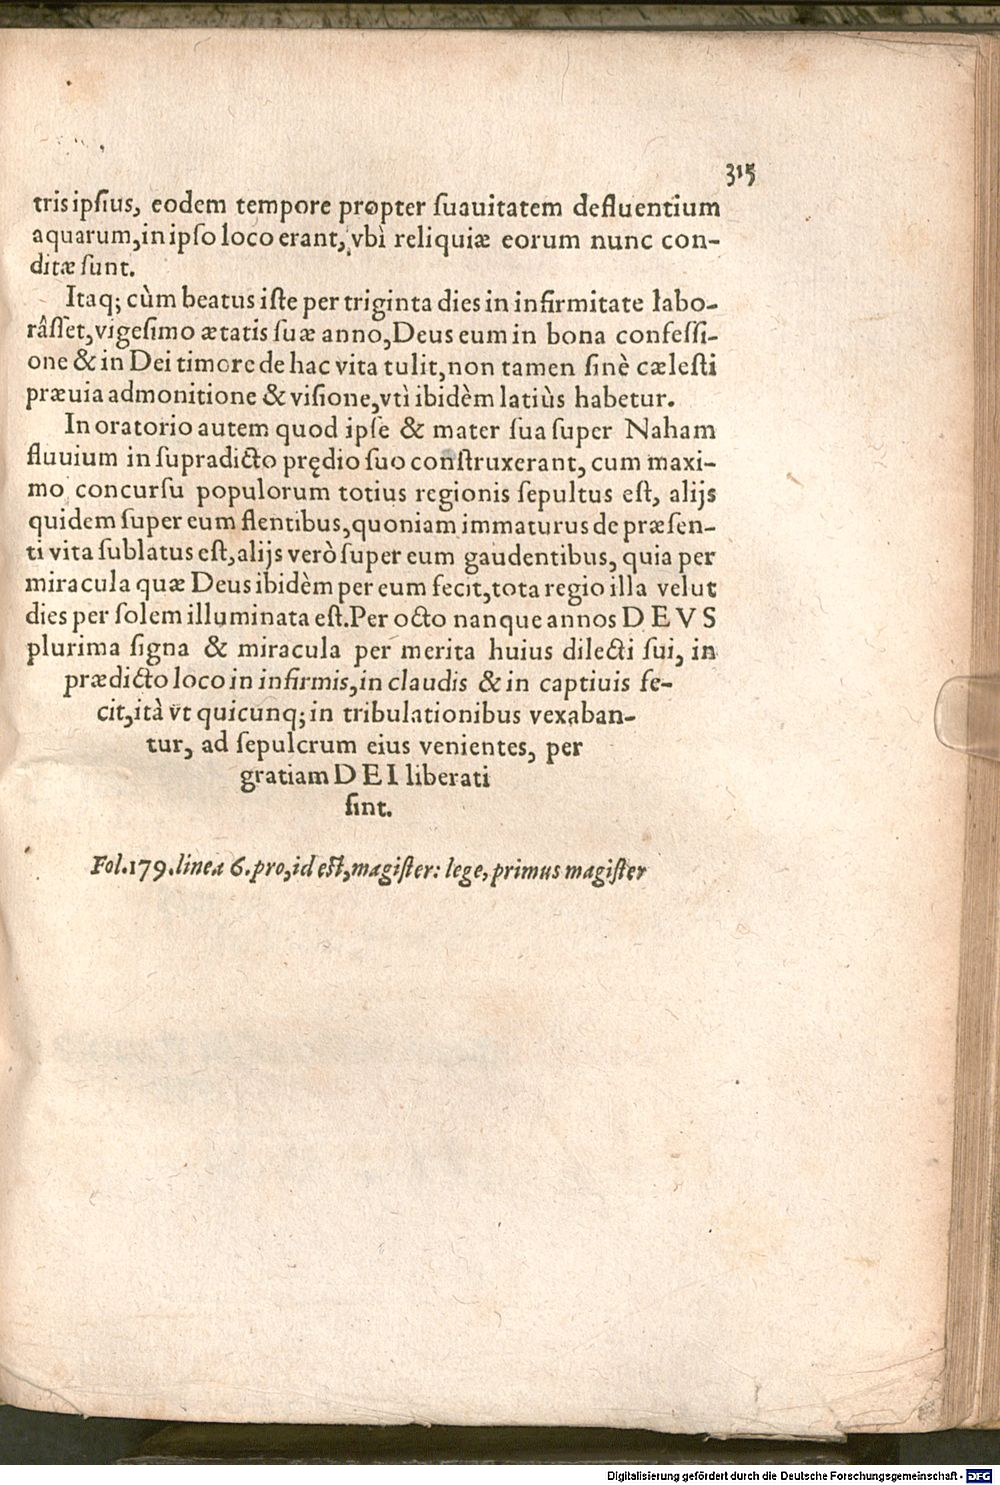 315
tris ipſius, eodem tempore propter ſuauitatem defluentium
aquarum, in ipſo loco erant, vbì reliquiæ eorum nunc con-
ditæ ſunt.
Itaq; cùm beatus iſte per triginta dies in infirmitate labo-
râſſet, vigeſimo ætatis ſuæ anno, Deus eum in bona confeſſi-
one & in Dei timore de hac vita tulit, non tamen ſinè cæleſti
præuia admonitione & viſione, vtì ibidèm latiùs habetur.
In oratorio autem quod ipſe & mater ſua ſuper Naham
fluuium in ſupradicto prędio ſuo conſtruxerant, cum maxi-
mo concurſu populorum totius regionis ſepultus eſt, alijs
quidem ſuper eum flentibus, quoniam immaturus de præſen-
ti vita ſublatus eſt, alijs verò ſuper eum gaudentibus, quia per
miracula quæ Deus ibidèm per eum fecit, tota regio illa velut
dies per ſolem illuminata eſt. Per octo nanque annos DEVS
plurima ſigna & miracula per merita huius dilecti ſui, in
prædicto loco in infirmis, in claudis & in captiuis fe-
cit, ità vt quicunq; in tribulationibus vexaban-
tur, ad ſepulcrum eius venientes, per
gratiam DEI liberati
ſint.
Fol. 179. linea 6. pro, id eſt, magiſter: lege, primus magiſter
Digitalisierung gefördert durch die Deutsche Forschungsgemeinschaft - DFG